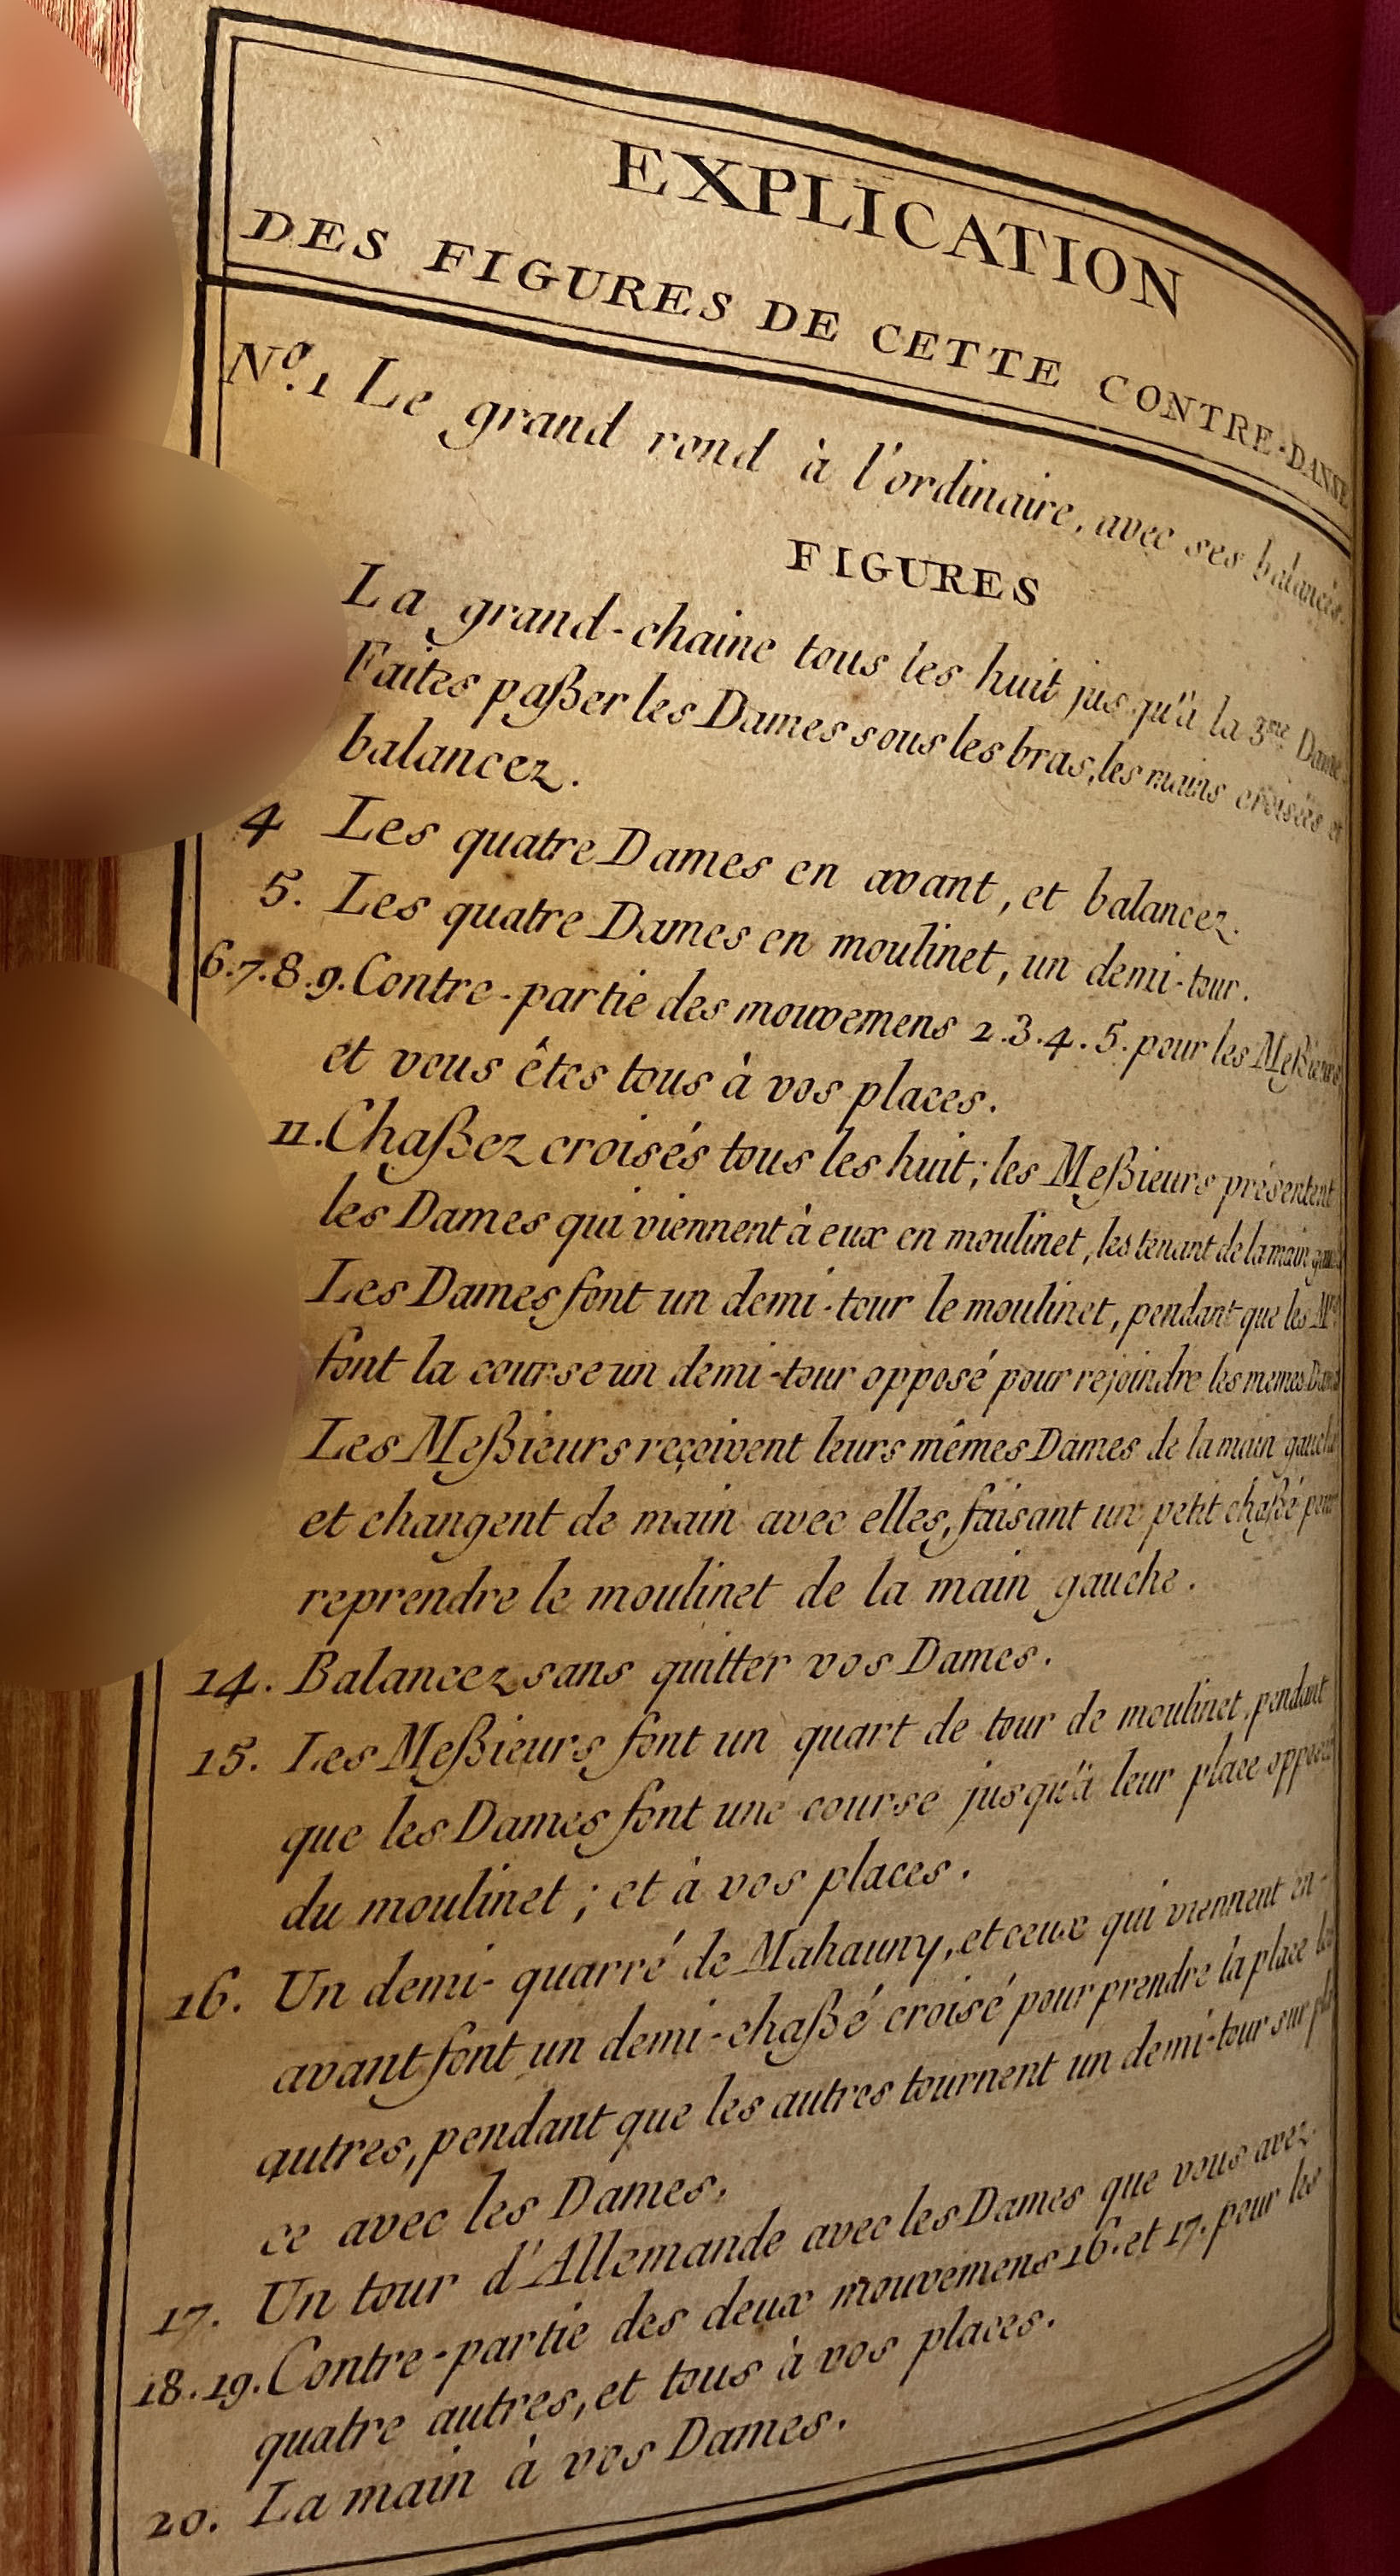 EXPLICATION
DES FIGURES DE CETTE CONTRE-DANSE
Nº. 1 Le grand rond à l'ordinaire, avec ses balancés.
FIGURES
La grand-chaine tous les huit jusqu'à la 3me Dame
Faites paßer les Dames sous les bras, les mains croisées et
balancez.
4 Les quatre Dames en avant, et balancez.
5. Les quatre Dames en moulinet, un demi-tour.
6.7.8.9. Contre-partie des mouvemens 2.3.4.5. pour les Meßieurs
et vous êtes tous à vos places.
11. Chaßez croisés tous les huit; les Meßieurs présentent
les Dames qui viennent à eux en moulinet, les tenant de la main
Les Dames font un demi-tour le moulinet, pendant que les Mrs
font la course un demi-tour opposé pour rejoindre les memes Dames
Les Meßieurs reçoivent leurs mêmes Dames de la main gauche
et changent de main avec elles, faisant un petit chaßé pour
reprendre le moulinet de la main gauche.
14. Balancez sans quitter vos Dames.
15. Les Meßieurs font un quart de tour de moulinet, pendant
que les Dames font une course jusqu'à leur place opposée
du moulinet; et à vos places.
16. Un demi-quarré de Mahauny, et ceux qui viennent en-
avant font un demi-chaßé croisé pour prendre la place les
autres, pendant que les autres tournent un demi-tour sur pla
ce avec les Dames.
17. Un tour d'Allemande avec les Dames que vous avez.
18.19. Contre-partie des deux mouvemens 16. et 17. pour les
quatre autres, et tous à vos places.
20. La main à vos Dames.